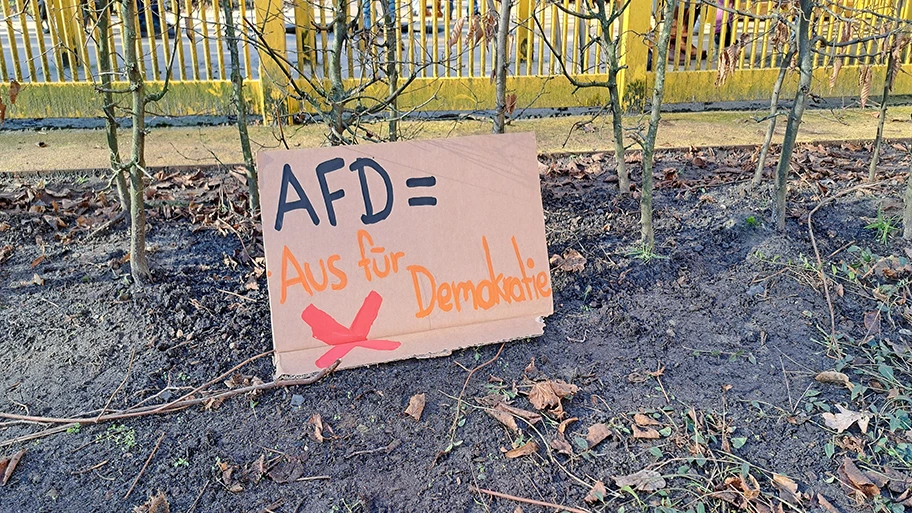 AFD=
Aus für Demokratie